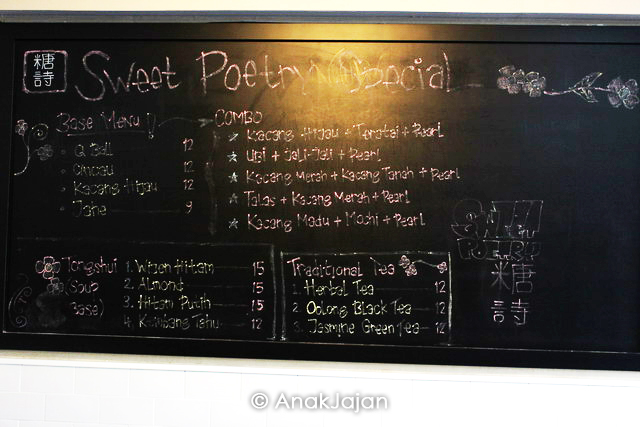 糖詩 Sweet Poetry Special
Base Menu
Q Ball 12
Cincau 12
Kacang Hijau 12
Jahe 9
COMBO
Kacang Hijau + Teratai + Pearl
Ubi + Jali-Jali + Pearl
Kacang Merah + Kacang Tanah + Pearl
Talas + Kacang Merah + Pearl
Kacang Madu + Mochi + Pearl
Tongshui (Soup Base)
1. Wijen Hitam 15
2. Almond 15
3. Hitam Putih 15
4. Kembang Tahu 12
Traditional Tea
1. Herbal Tea 12
2. Oolong Black Tea 12
3. Jasmine Green Tea 12
POETRY
糖
詩
© AnakJajan